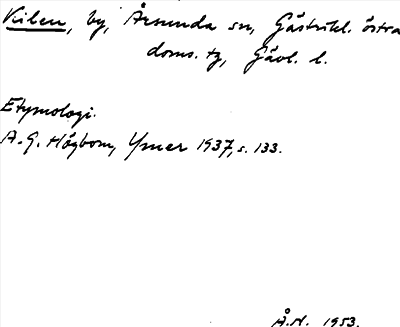 Kilen, by, Årsunda sn, Gästrikl. östra
doms. tg, Gävl. l.
Etymologi.
A. G. Högbom, Ymer 1937, s. 133.
Å.N. 1953.